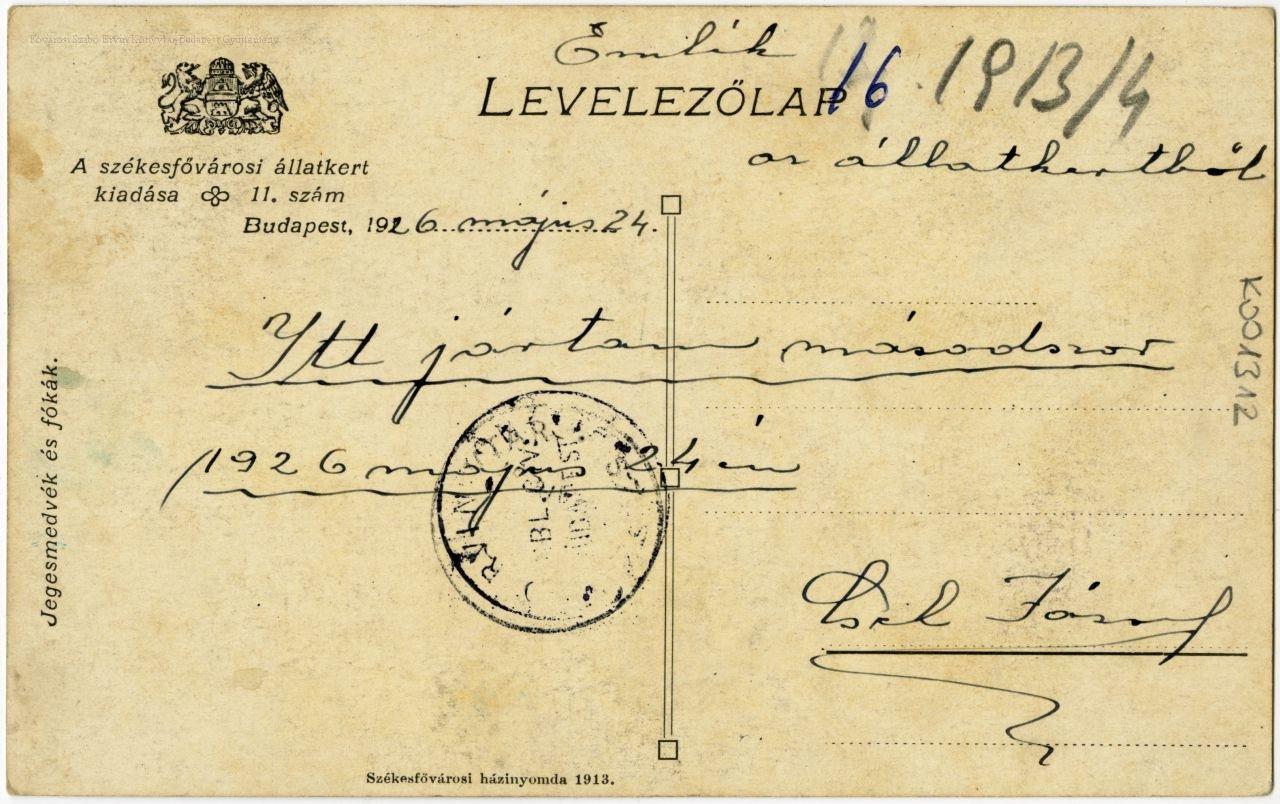 Fővárosi Szabó Ervin Könyvtár Budapest Gyűjtemény
Emlék
LEVELEZŐLAP
16 1913/4
az állatkertből
A székesfővárosi állatkert
kiadása 11. szám
Budapest, 1926 május 24.
Itt jártam másodszor
1926 május 24 én
József
K001312
Jegesmedvék és fókák.
Székesfővárosi házinyomda 1913.